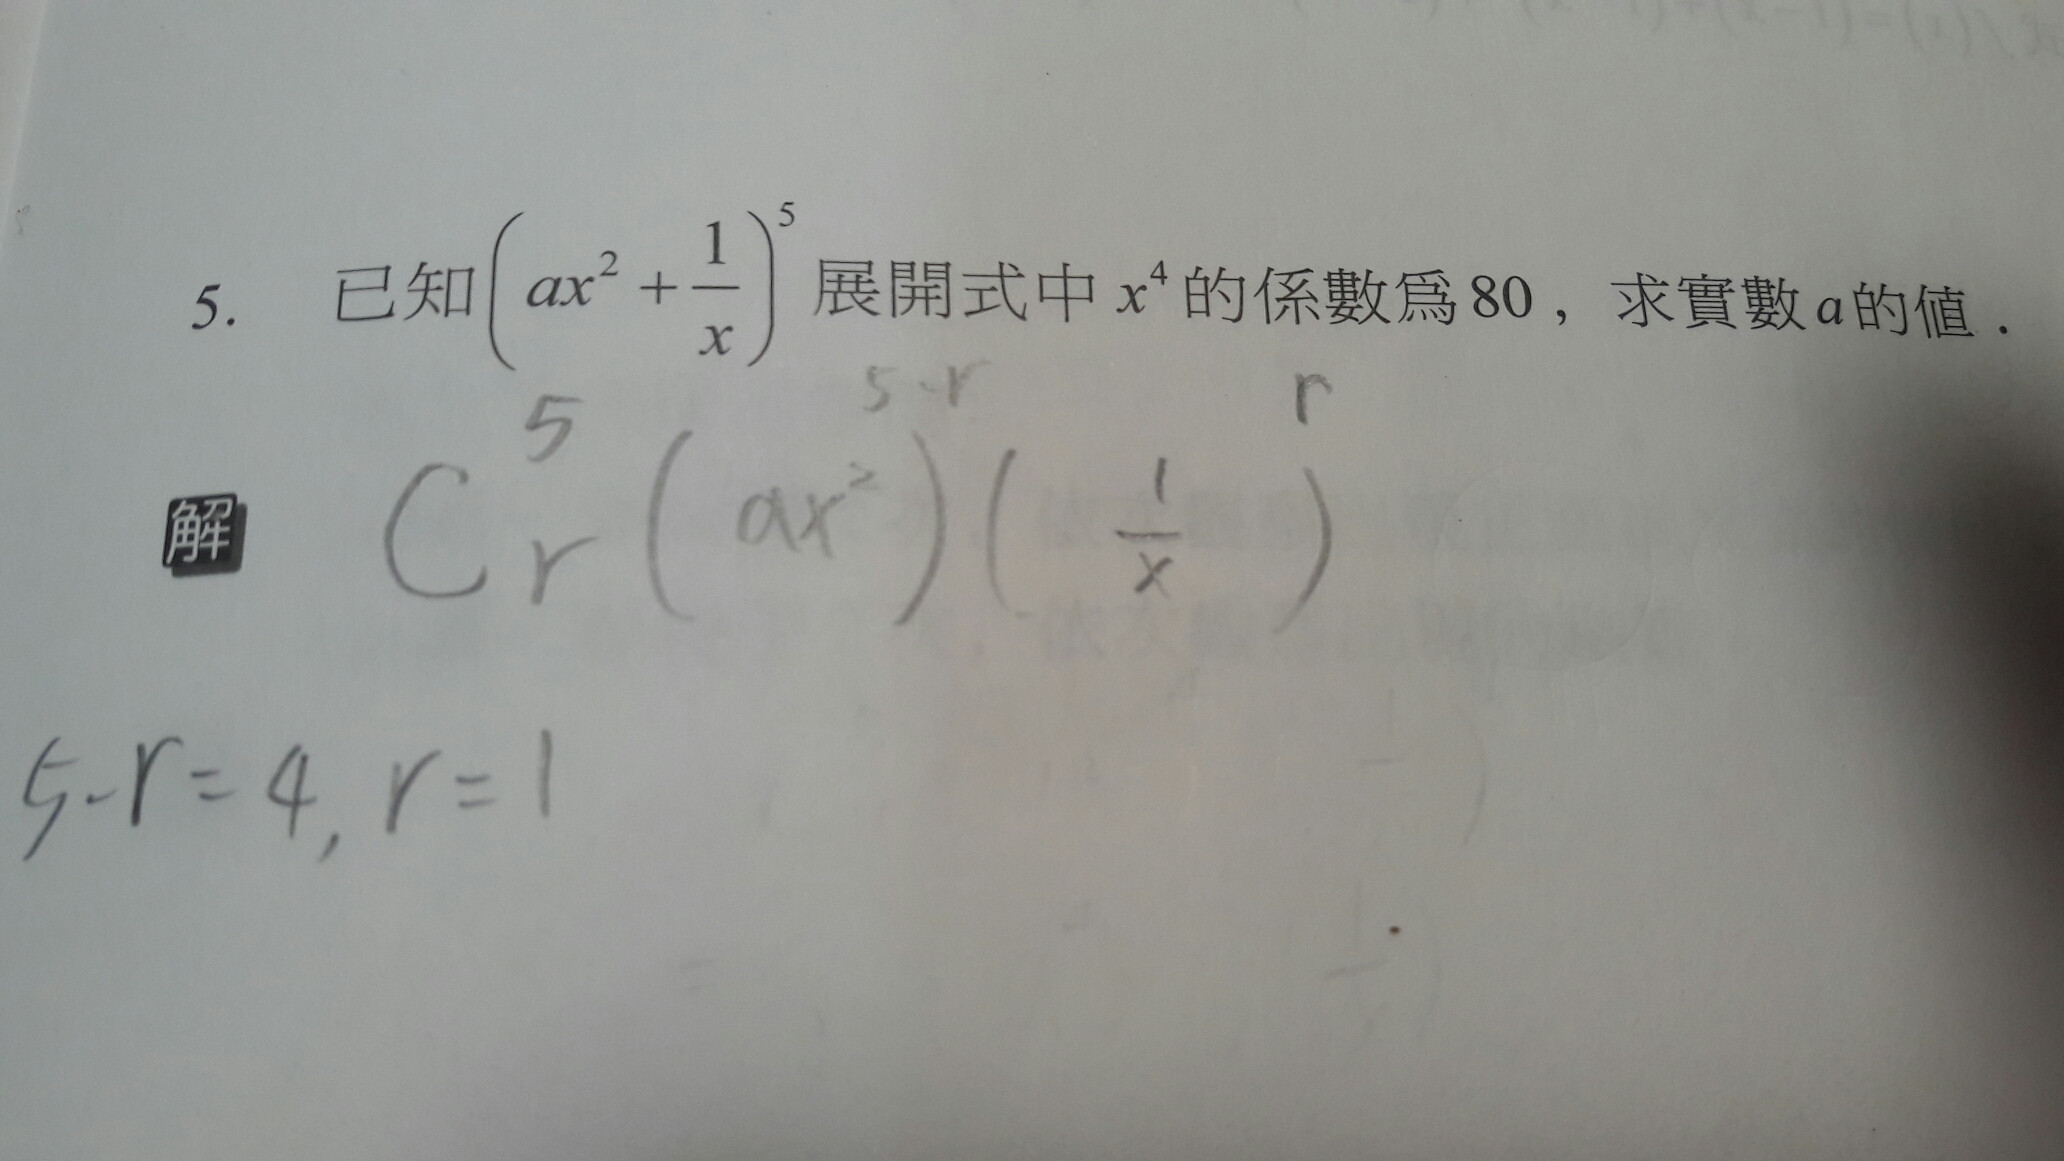 5. 已知(ax² + 1/x)⁵展開式中 x⁴的係數爲80，求實數a的值．
解 C⁵ᵣ(ax²)⁵⁻ʳ(1/x)ʳ
5-r=4, r=1